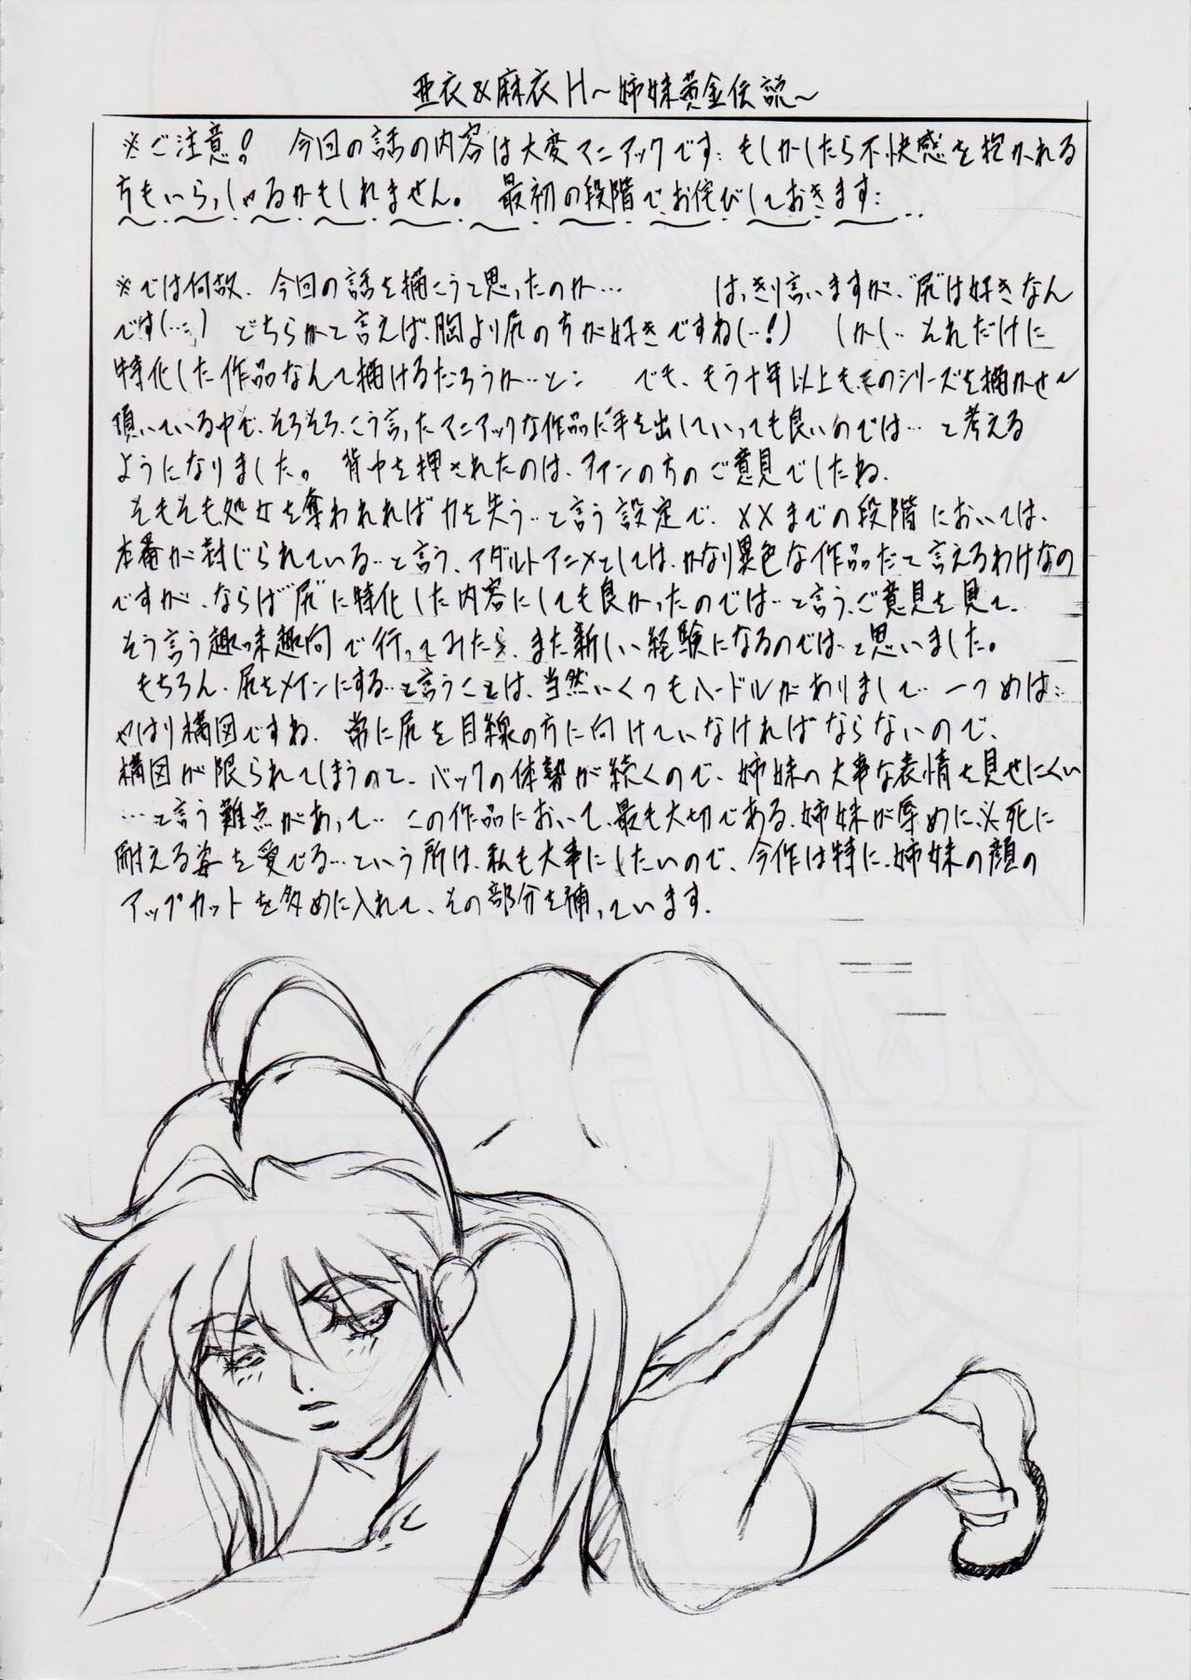 亜衣&麻衣H～姉妹黄金伝説～
※ご注意! 今回の話の内容は大変マニアックです… もしかしたら不快感を抱かれる
方もいらっしゃるかもしれません。 最初の段階でお侘びしておきます…
※では何故、今回の話を描こうと思ったのか… はっきり言いますが、尻は好きなん
です(…) どちらかと言えば、胸より尻の方が好きですね(…!) しかし… それだけに
特化した作品なんて描けるだろうか…と… でも、もう十年以上も、このシリーズを描かせて
頂いている中で、そろそろ、こう言ったマニアックな作品に手を出していっても良いのでは…と考える
ようになりました。 背中を押されたのは、ファンの方のご意見でしたね、
そもそも、処女を奪われれば力を失う…と言う設定で、××までの段階においては、
本番が封じられている…と言う、アダルトアニメとしては、かなり異色な作品だと言えるわけなの
ですが、ならば尻に特化した内容にしても良かったのでは…と言う、ご意見を見て、
そう言う趣味趣向で行ってみたら、また新しい経験になるのでは…と思いました。
もちろん、尻をメインにする…と言うことは、当然いくつもハードルがありまして… 一つめは…
やはり構図ですね、 常に尻を目線の方に向けていなければならないので、
構図が限られてしまうのと、バックの体勢が続くので、姉妹の大事な表情を見せにくい
…と言う難点があって… この作品において、最も大切である、姉妹が辱めに、必死に
耐える姿を愛でる…という所は、私も大事にしたいので、今作は特に、姉妹の顔の
アップカットを多めに入れて、その部分を補っています。